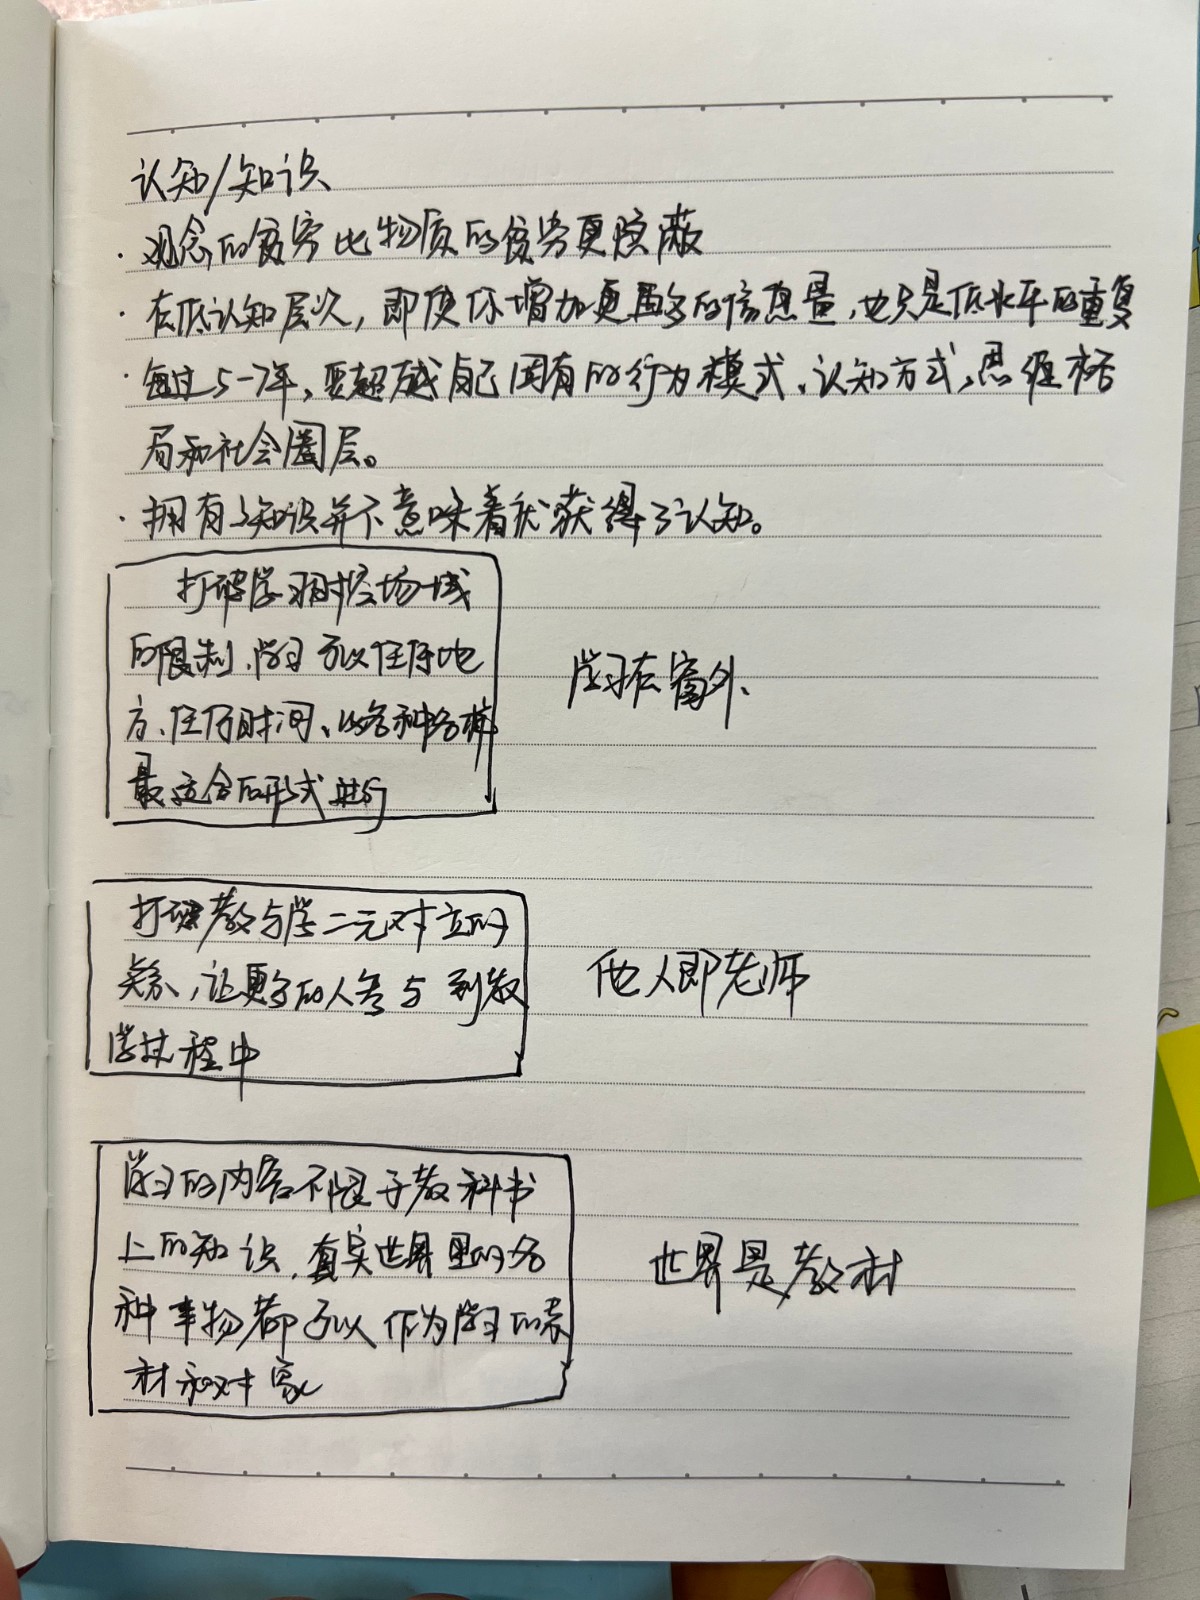 认知/知识
· 观念的贫穷比物质的贫穷更隐蔽
· 在低认知层次，即使你增加更多的信息量，也只是低水平的重复
· 每过5-7年，要超越自己固有的行为模式、认知方式、思维格
局和社会圈层。
· 拥有了知识并不意味着我获得了认知。
打破学习时空场域
的限制，学习可以任何地
方、任何时间、以各种各样
最适合的形式进行
学习在窗外、
打破教与学二元对立的
关系，让更多的人参与到教
学过程中
他人即老师
学习的内容不限于教科书
上的知识，真实世界里的各
种事物都可以作为学习的素
材和对象
世界是教材